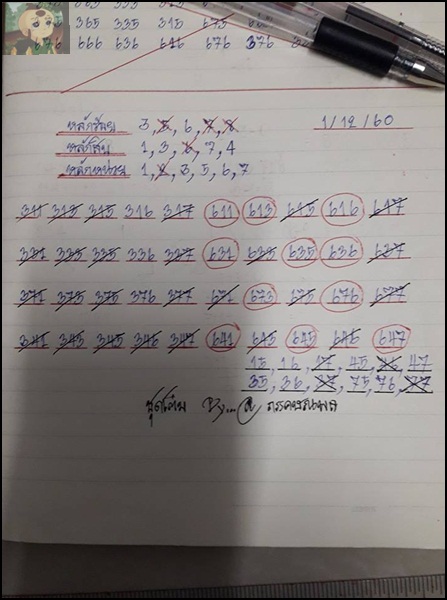 365 335 315 675
676 666 636 616 676 376
หลักร้อย 3, 5, 6, 7, 8 1/12/60
หลักสิบ 1, 3, 6, 7, 4
หลักหน่วย 1, 2, 3, 5, 6, 7
311 313 315 316 317 611 613 615 616 617
331 333 335 336 337 631 633 635 636 637
371 373 375 376 377 671 673 675 676 677
341 343 345 346 347 641 643 645 646 647
15, 16, 17, 45, 46, 47
35, 36, 37, 75, 76, 77
ชุดเต็ม By...